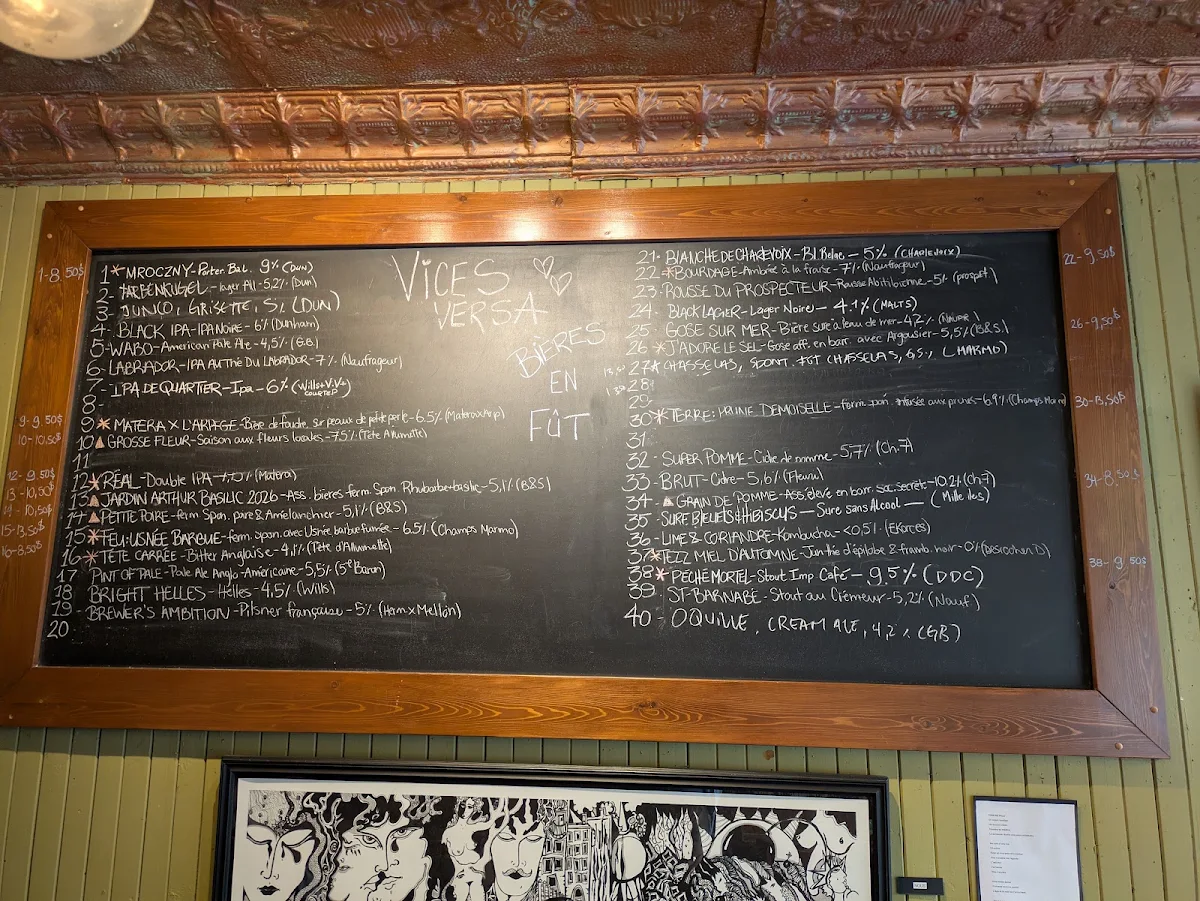 VICES
VERSA
BIÈRES
EN
FÛT
1-8.50$
1* MROCZNY-Porter Bal. 9% (DUN)
2- TARPENKUGEL-lager All-5,2% (Dun)
3- JUNCO, GRISETTE, 5% (DUN)
4- BLACK IPA-IPA Noire-6% (Dunham)
5-WABO-American Pale Ale-4,5% (G.B.)
6-LABRADOR-IPA AU THÉ DU LABRADOR-7% (Naufrageur)
7-IPA DE QUARTIER-Ipa-6% (Wills+V.V+
8-
9-9.50$
9 * MATERA X L'ARPEGE-Bière de foudre sur peaux de petite perle-6.5%
10-10,50$
10 GROSSE FLEUR-Saison aux fleurs locales-7.5% (Tête d'Allumette)
11
12-9.50$
12* RÉAL-Double IPA-7,0% (Matera)
13-10,50$
13 JARDIN ARTHUR BASILIC 2026-Ass. bières ferm. Spon. Rhubarbe+basilic-5,1% (B&S)
14-10,50$
14 PETITE POIRE-ferm Spon. poire & Amélanchier-5,1% (B&S)
15-13,50$
15* FEU: USNÉE BARBUE-ferm. spon. avec Usnée barbue fumée-6.5% (Champs Marmo)
16-8,50$
16-* TÊTE CARRÉE-Bitter Anglaise-4,1% (Tête d'Allumette)
17 PINT OF PALE-Pale Ale Anglo-Américaine-5,5% (5e Baron)
18 BRIGHT HELLES-Helles-4,5% (Wills)
19-BREWER'S AMBITION-Pilsner française-5% (Ham x Mellön)
20
21- BLANCHE DE CHARLEVOIX-Bl. Belge-5% (CHARLEVOIX)
22-9,50$
22-*BOURDAGE-Ambrée à la fraise-7% (Naufrageur)
23-ROUSSE DU PROSPECTEUR-Rousse Abitibienne-5% (prospect.)
24- BLACK LAGER-Lager Noire-4.1% (MALTS)
25- GOSE SUR MER-Bière sure à l'eau de mer-4,2%
26-9,50$
26-*J'ADORE LE SEL-Gose aff. en barr. avec Argousier-5,5% (B&S.)
27* CHASSELAS, SPONT. FÛT CHASSELAS, 6,5% (MARMO)
28-
29-
30-13,50$
30* TERRE: PRUNE DEMOISELLE-ferm. spon. infusée aux prunes-6.9% (Champs Marm)
31
32- SUPER POMME-Cidre de pomme-5,7% (Ch.7)
33- BRUT-Cidre-5,6% (Fleuri)
34-8,50$
34- GRAIN DE POMME-Ass. élevé en barr. sac. secret-10.2% (Ch.7)
35- SURE BLEUETS & HIBISCUS-Sure sans Alcool-(Mille Iles)
36-LIME & CORIANDRE-Kombucha-<0,5% (Éforces)
37* TZZ MIEL D'AUTOMNE-Jun thé d'épilobe & framb. noir-0%
38-9,50$
38* PÉCHÉ MORTEL-Stout Imp Café-9.5% (DDC)
39- ST-BARNABÉ-Stout au Crémeur-5,2% (Nauf)
40-OQUILLE, CREAM ALE, 4,2% (GB)